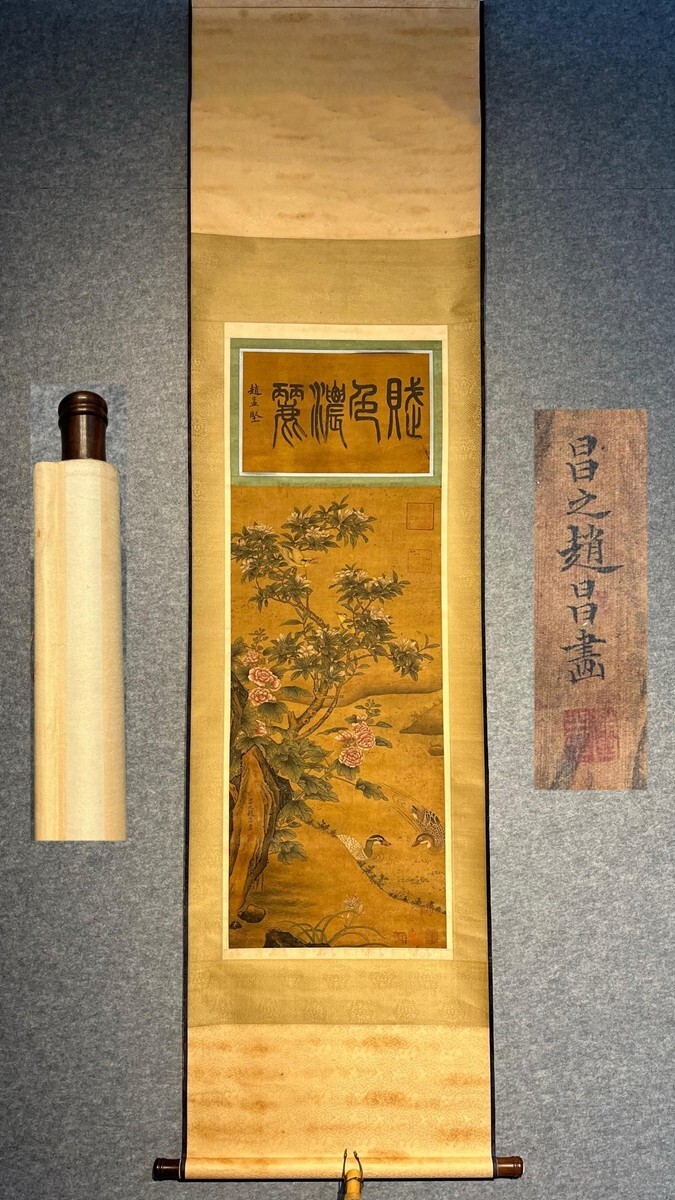 賦色濃麗
趙孟堅
昌之趙昌畫